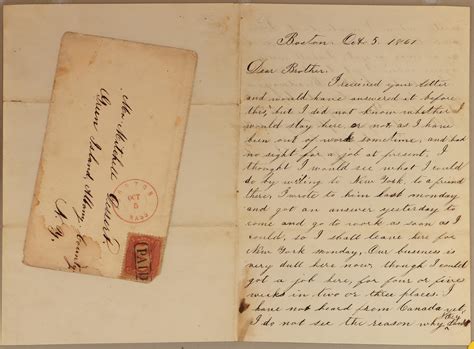 Mr Mitchell
Green Island Albany County
N. Y.
BOSTON
OCT
5
MASS
PAID
Boston. Oct. 5. 1861
Dear Brother.
I received your letter
and would have answered it before
this, but I did not know whether I
would stay here or not as I have
been out of work sometime, and had
no sight for a job at present, I
thought I would see what I could
do by writing to New York, to a friend
there, I wrote to him last monday
and got an answer yesterday to
come and go to work as soon as I
could, so I shall leave here for
New York Monday, Our business is
very dull here now, though I could
got a job here, for four or five
weeks in two or three places. I
have not heard from Canada yet,
I do not see the reason why they